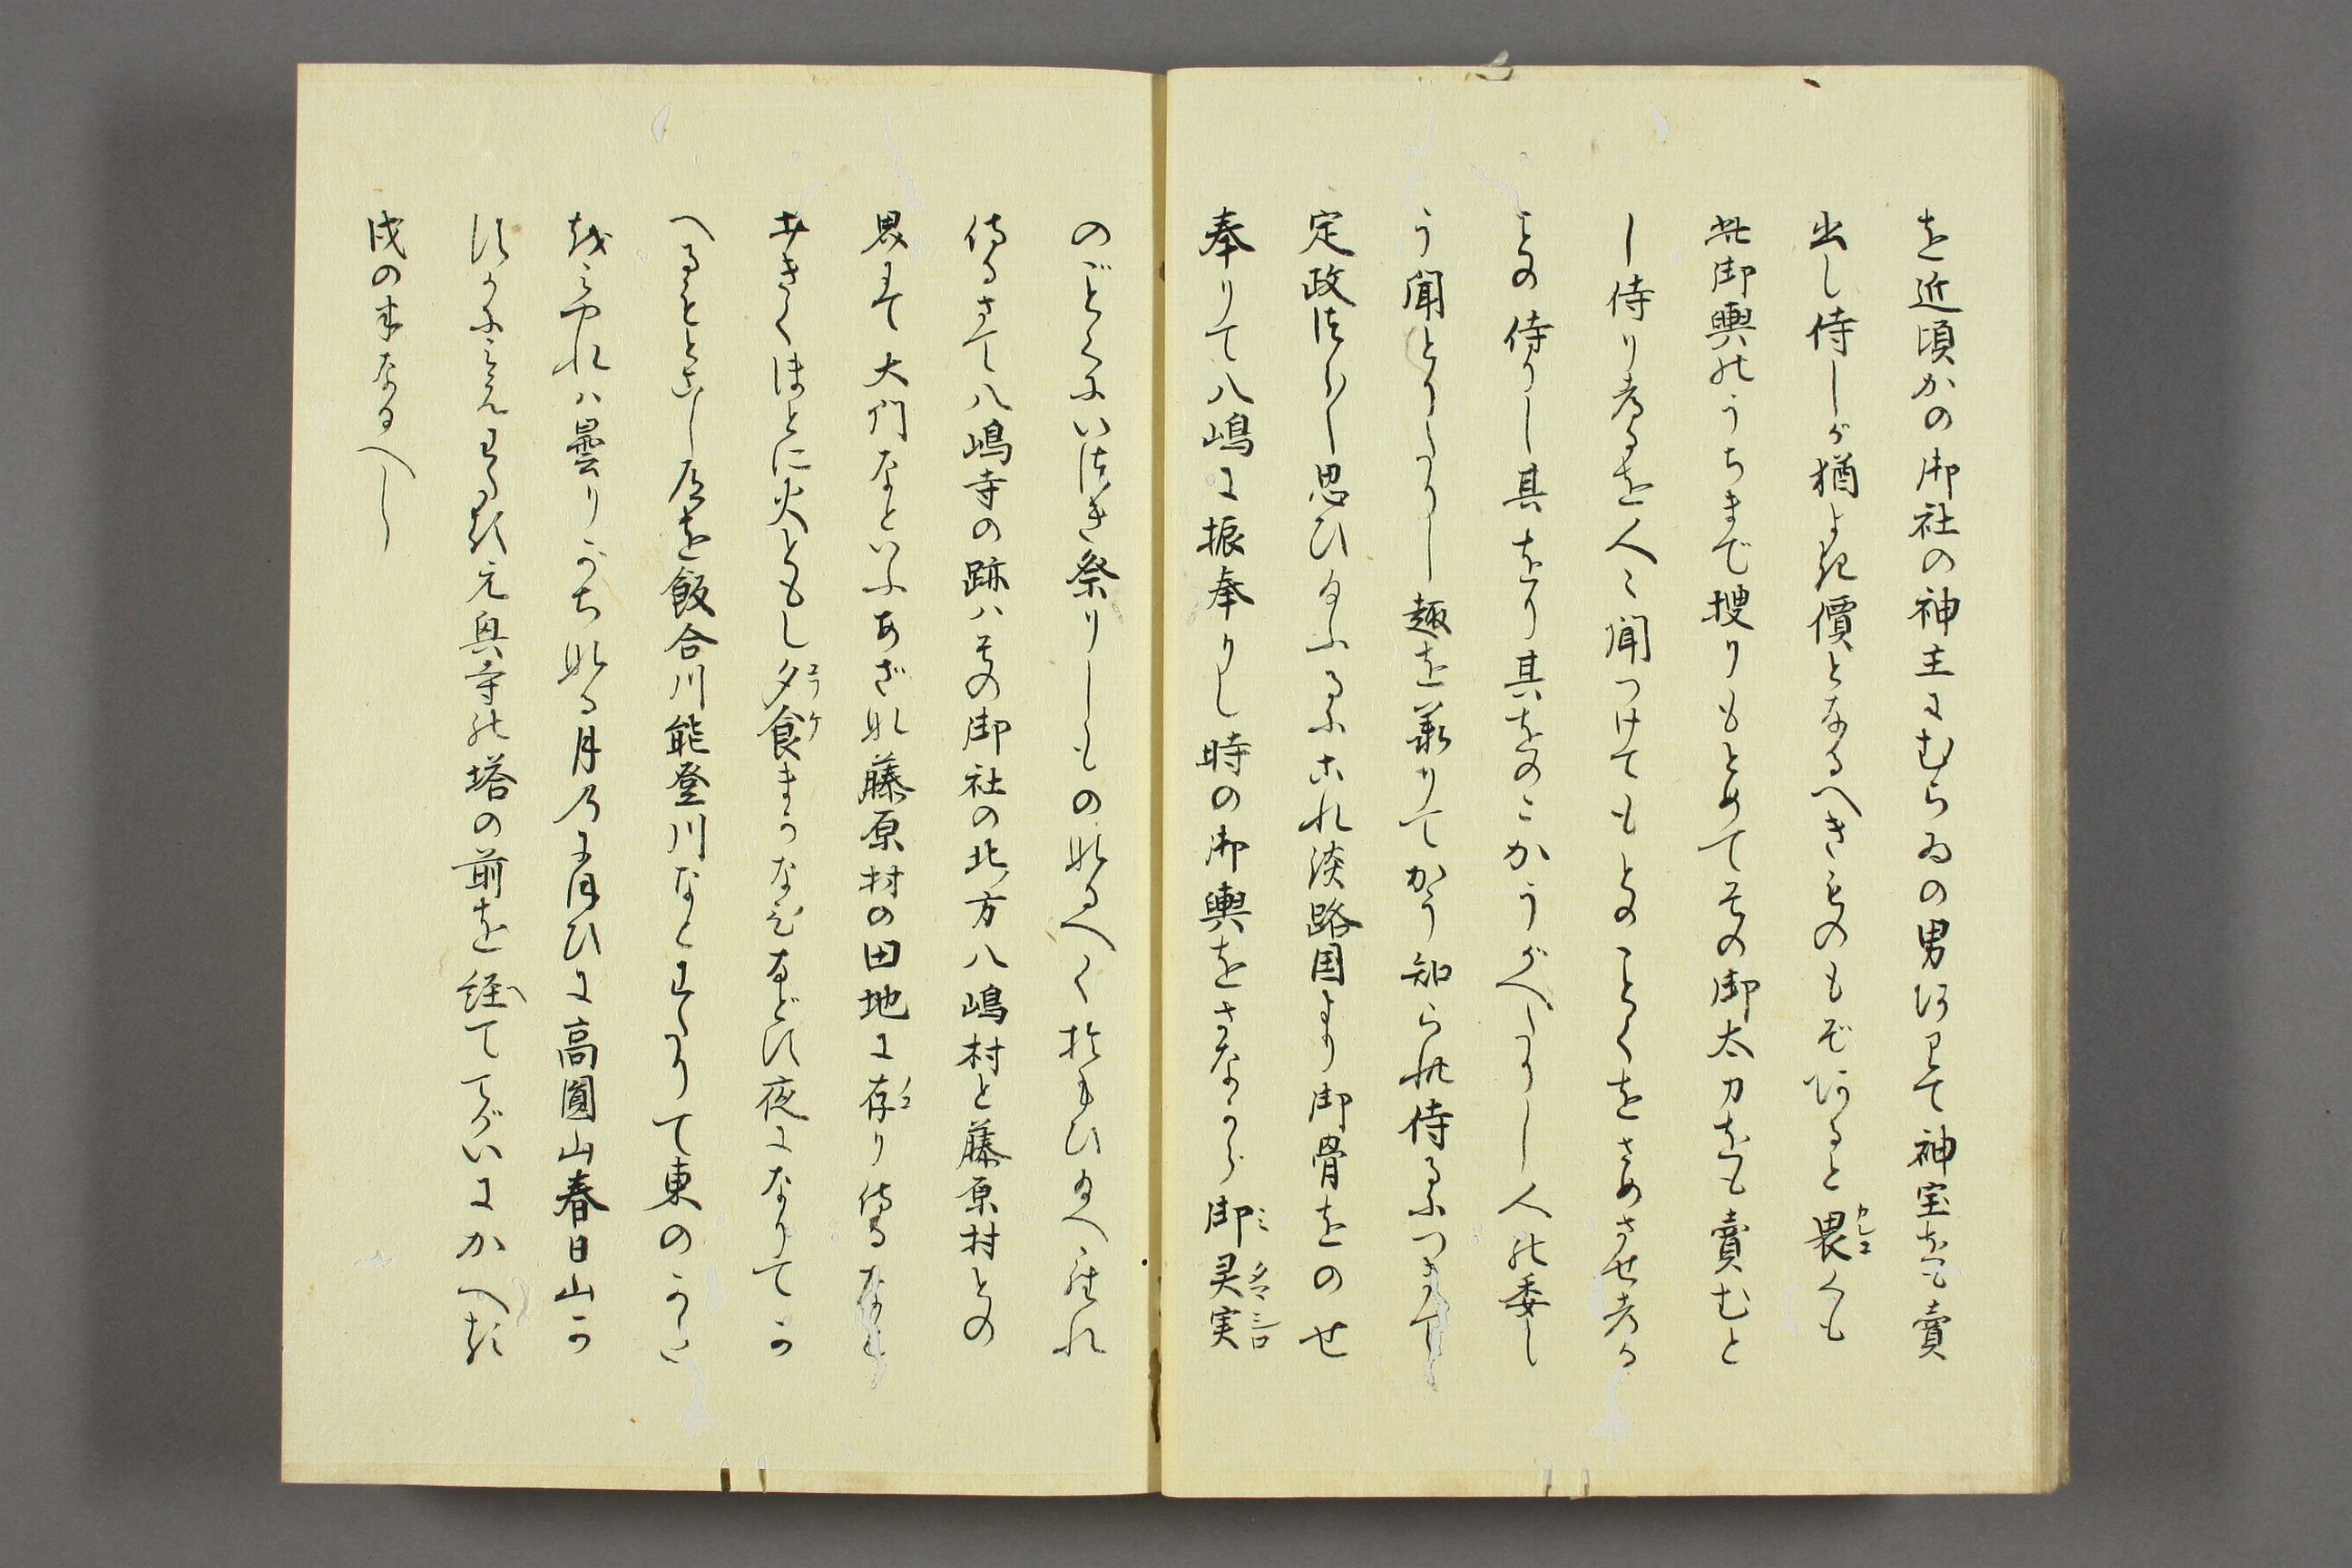 を近頃かの御社の神主にむらゐの男ありて神宝をも賣
出し侍しが猶よき價となるへきものもぞあると畏くも
此御輿のうちまで捜りもとめてその御太刀をも賣むと
し侍りけるを人々聞つけてもとのことくをさめさせける
との侍りし其をり其をのこかうがへたりし人の委し
う聞とりたりし趣を兼りてかう知られ侍るにつきて
定政つら〱思ひ給ふるにこれ淡路国より御骨をのせ
奉りて八嶋に振奉りし時の御輿をさながら御灵実
のごとくにいつき祭りしものなるへくおもひ給へられ
侍るさて八嶋寺の跡ハその御社の北方八嶋村と藤原村との
界にて大門なといふあざな藤原村の田地に存り侍るなり
せきくほとに火ともし夕食まうなひなどす夜になりてか
へるととこし居を飯合川能登川なとわたりて東のかた
をみやれハ曇りがちなる月のよひに高圓山春日山か
すかにみえわたる元興寺の塔の前を経ててがいにかへる
戌の半なるへし